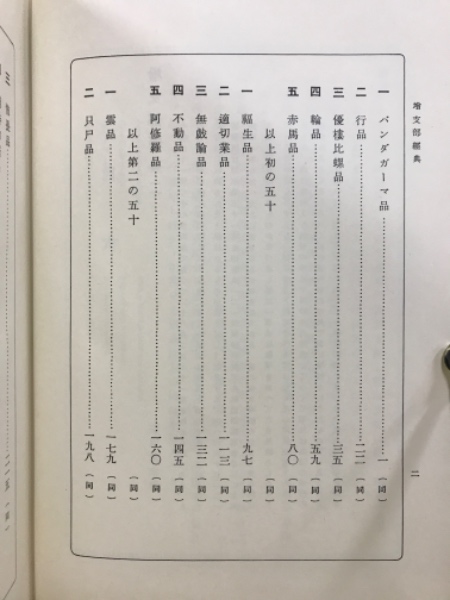 増支部經典
一 バンダガーマ品……一 (同)
二 行品……二二 (同)
三 優樓比螺品……三五 (同)
四 輪品……五九 (同)
五 赤馬品……八〇 (同)
以上初の五十 (同)
一 福生品……九七 (同)
二 適切業品……一一三 (同)
三 無戲論品……一三二 (同)
四 不動品……一四五 (同)
五 阿修羅品……一六〇 (同)
以上第二の五十 (同)
一 雲品……一七九 (同)
二 只尸品……一九八 (同)
二
三